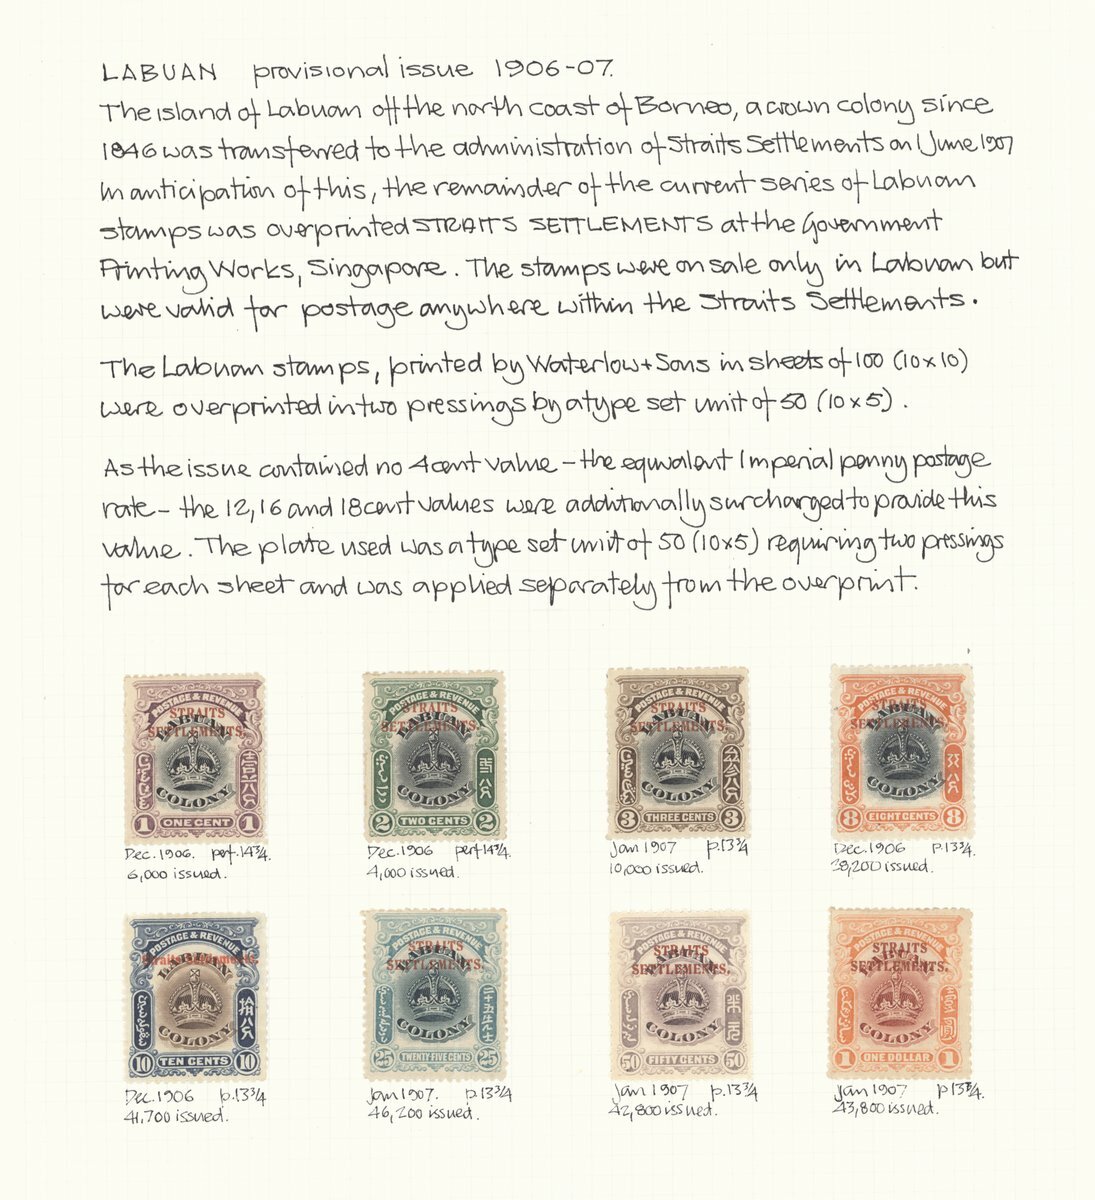 LABUAN provisional issue 1906-07.
The island of Labuan off the north coast of Borneo, a crown colony since
1846 was transferred to the administration of Straits Settlements on 1 June 1907
In anticipation of this, the remainder of the current series of Labuan
stamps was overprinted STRAITS SETTLEMENTS at the Government
Printing Works, Singapore. The stamps were on sale only in Labuan but
were valid for postage anywhere within the Straits Settlements.
The Labuan stamps, printed by Waterlow + Sons in sheets of 100 (10x10)
were overprinted in two pressings by a type set unit of 50 (10x5).
As the issue contained no 4cent value – the equivalent Imperial penny postage
rate – the 12, 16 and 18cent values were additionally surcharged to provide this
value. The plate used was a type set unit of 50 (10x5) requiring two pressings
for each sheet and was applied separately from the overprint.
POSTAGE & REVENUE
STRAITS
LABUAN
SETTLEMENTS.
COLONY
1 ONE CENT 1
POSTAGE & REVENUE
STRAITS
LABUAN
SETTLEMENTS.
COLONY
2 TWO CENTS 2
POSTAGE & REVENUE
STRAITS
LABUAN
SETTLEMENTS.
COLONY
3 THREE CENTS 3
POSTAGE & REVENUE
STRAITS
LABUAN
SETTLEMENTS.
COLONY
8 EIGHT CENTS 8
Dec. 1906. perf. 14¾.
6,000 issued.
Dec. 1906 perf 14¾.
4,000 issued.
Jan 1907 p.13¾
10,000 issued.
Dec. 1906 p.13¾.
38,200 issued.
POSTAGE & REVENUE
Straits Settlements.
LABUAN
COLONY
10 TEN CENTS 10
POSTAGE & REVENUE
STRAITS
LABUAN
SETTLEMENTS.
COLONY
25 TWENTY-FIVE CENTS 25
POSTAGE & REVENUE
STRAITS
LABUAN
SETTLEMENTS.
COLONY
50 FIFTY CENTS 50
POSTAGE & REVENUE
STRAITS
LABUAN
SETTLEMENTS.
COLONY
1 ONE DOLLAR 1
Dec. 1906 p.13¾
41,700 issued.
Jan 1907. p.13¾
46,200 issued.
Jan 1907 p.13¾
42,800 issued.
Jan 1907 p 13¾.
43,800 issued.